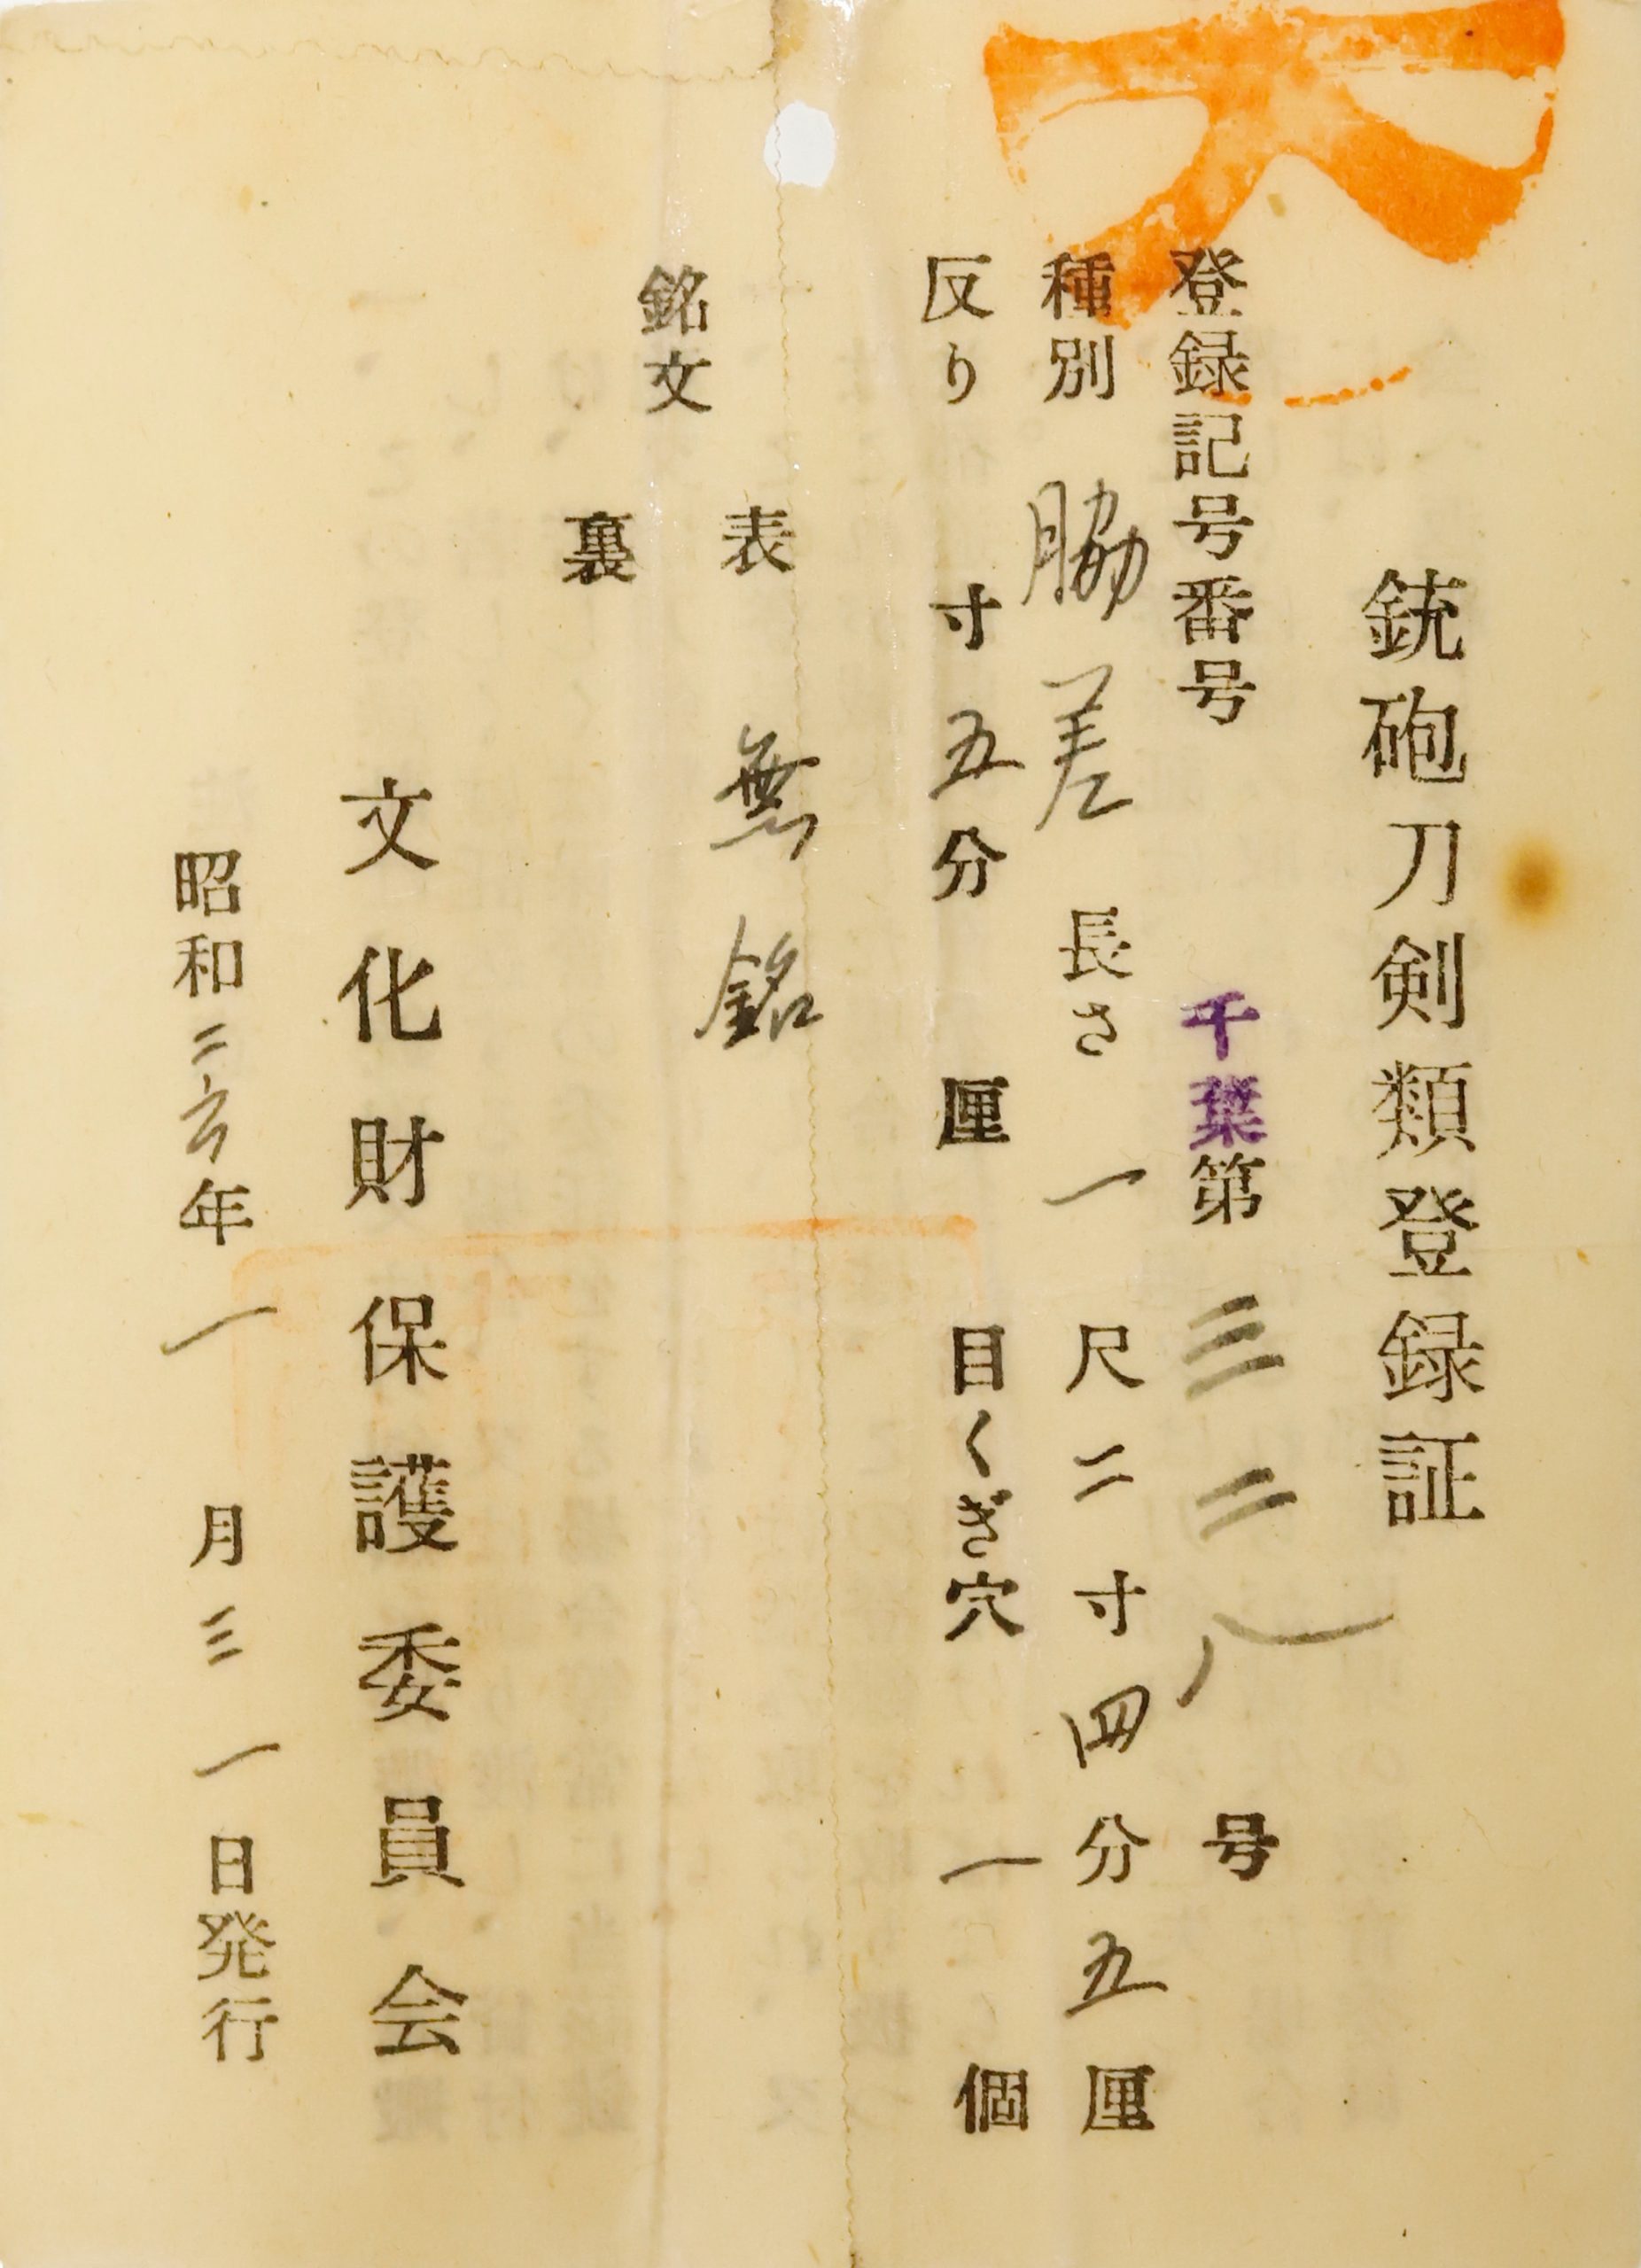 銃砲刀剣類登録証
登録記号番号 千葉第三二八号
種別 脇差 長さ 一尺二寸四分五厘
反り 寸五分 厘 目くぎ穴 一個
銘文
表 無銘
裏
文化財保護委員会
昭和二六年一月三一日発行